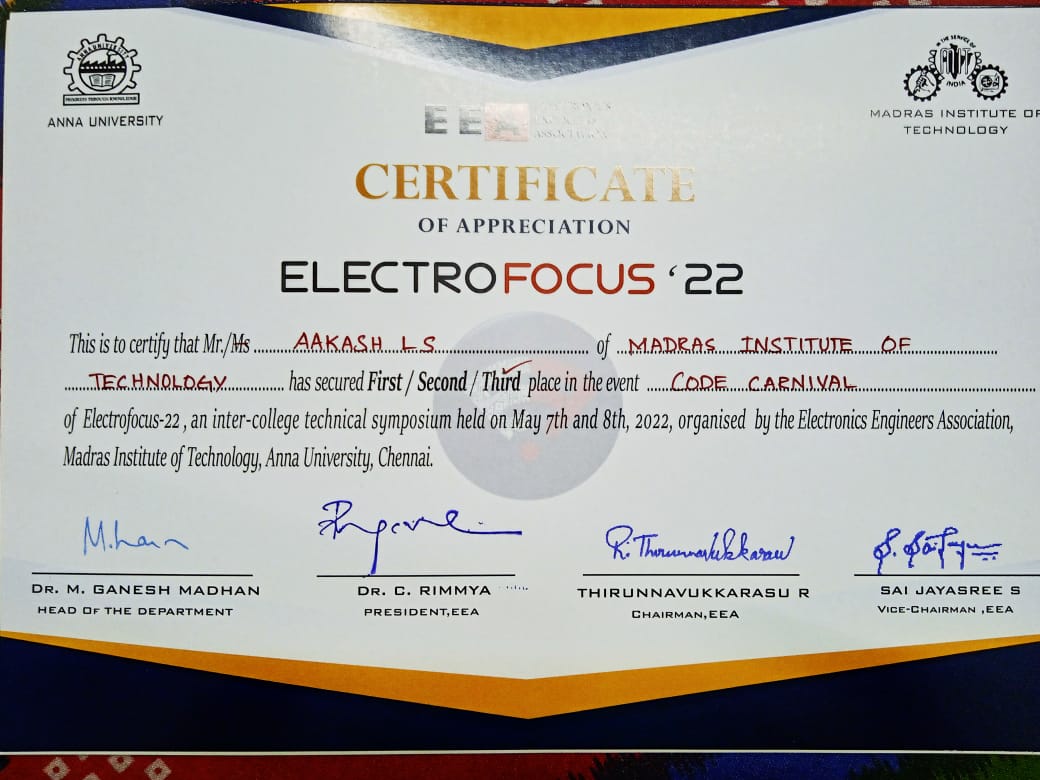 ANNA UNIVERSITY
PROGRESS THROUGH KNOWLEDGE
ANNA UNIVERSITY
IN THE SERVICE OF
MIT
INDIA
MADRAS INSTITUTE OF
TECHNOLOGY
EEA
ASSOCIATION
CERTIFICATE
OF APPRECIATION
ELECTROFOCUS ‘22
This is to certify that Mr./Ms AAKASH L S of MADRAS INSTITUTE OF
TECHNOLOGY has secured First / Second / Third place in the event CODE CARNIVAL
of Electrofocus-22 , an inter-college technical symposium held on May 7th and 8th, 2022, organised by the Electronics Engineers Association,
Madras Institute of Technology, Anna University, Chennai.
R. Thirunnavukkarasu
DR. M. GANESH MADHAN
HEAD OF THE DEPARTMENT
DR. C. RIMMYA
PRESIDENT,EEA
THIRUNNAVUKKARASU R
CHAIRMAN,EEA
SAI JAYASREE S
VICE-CHAIRMAN ,EEA